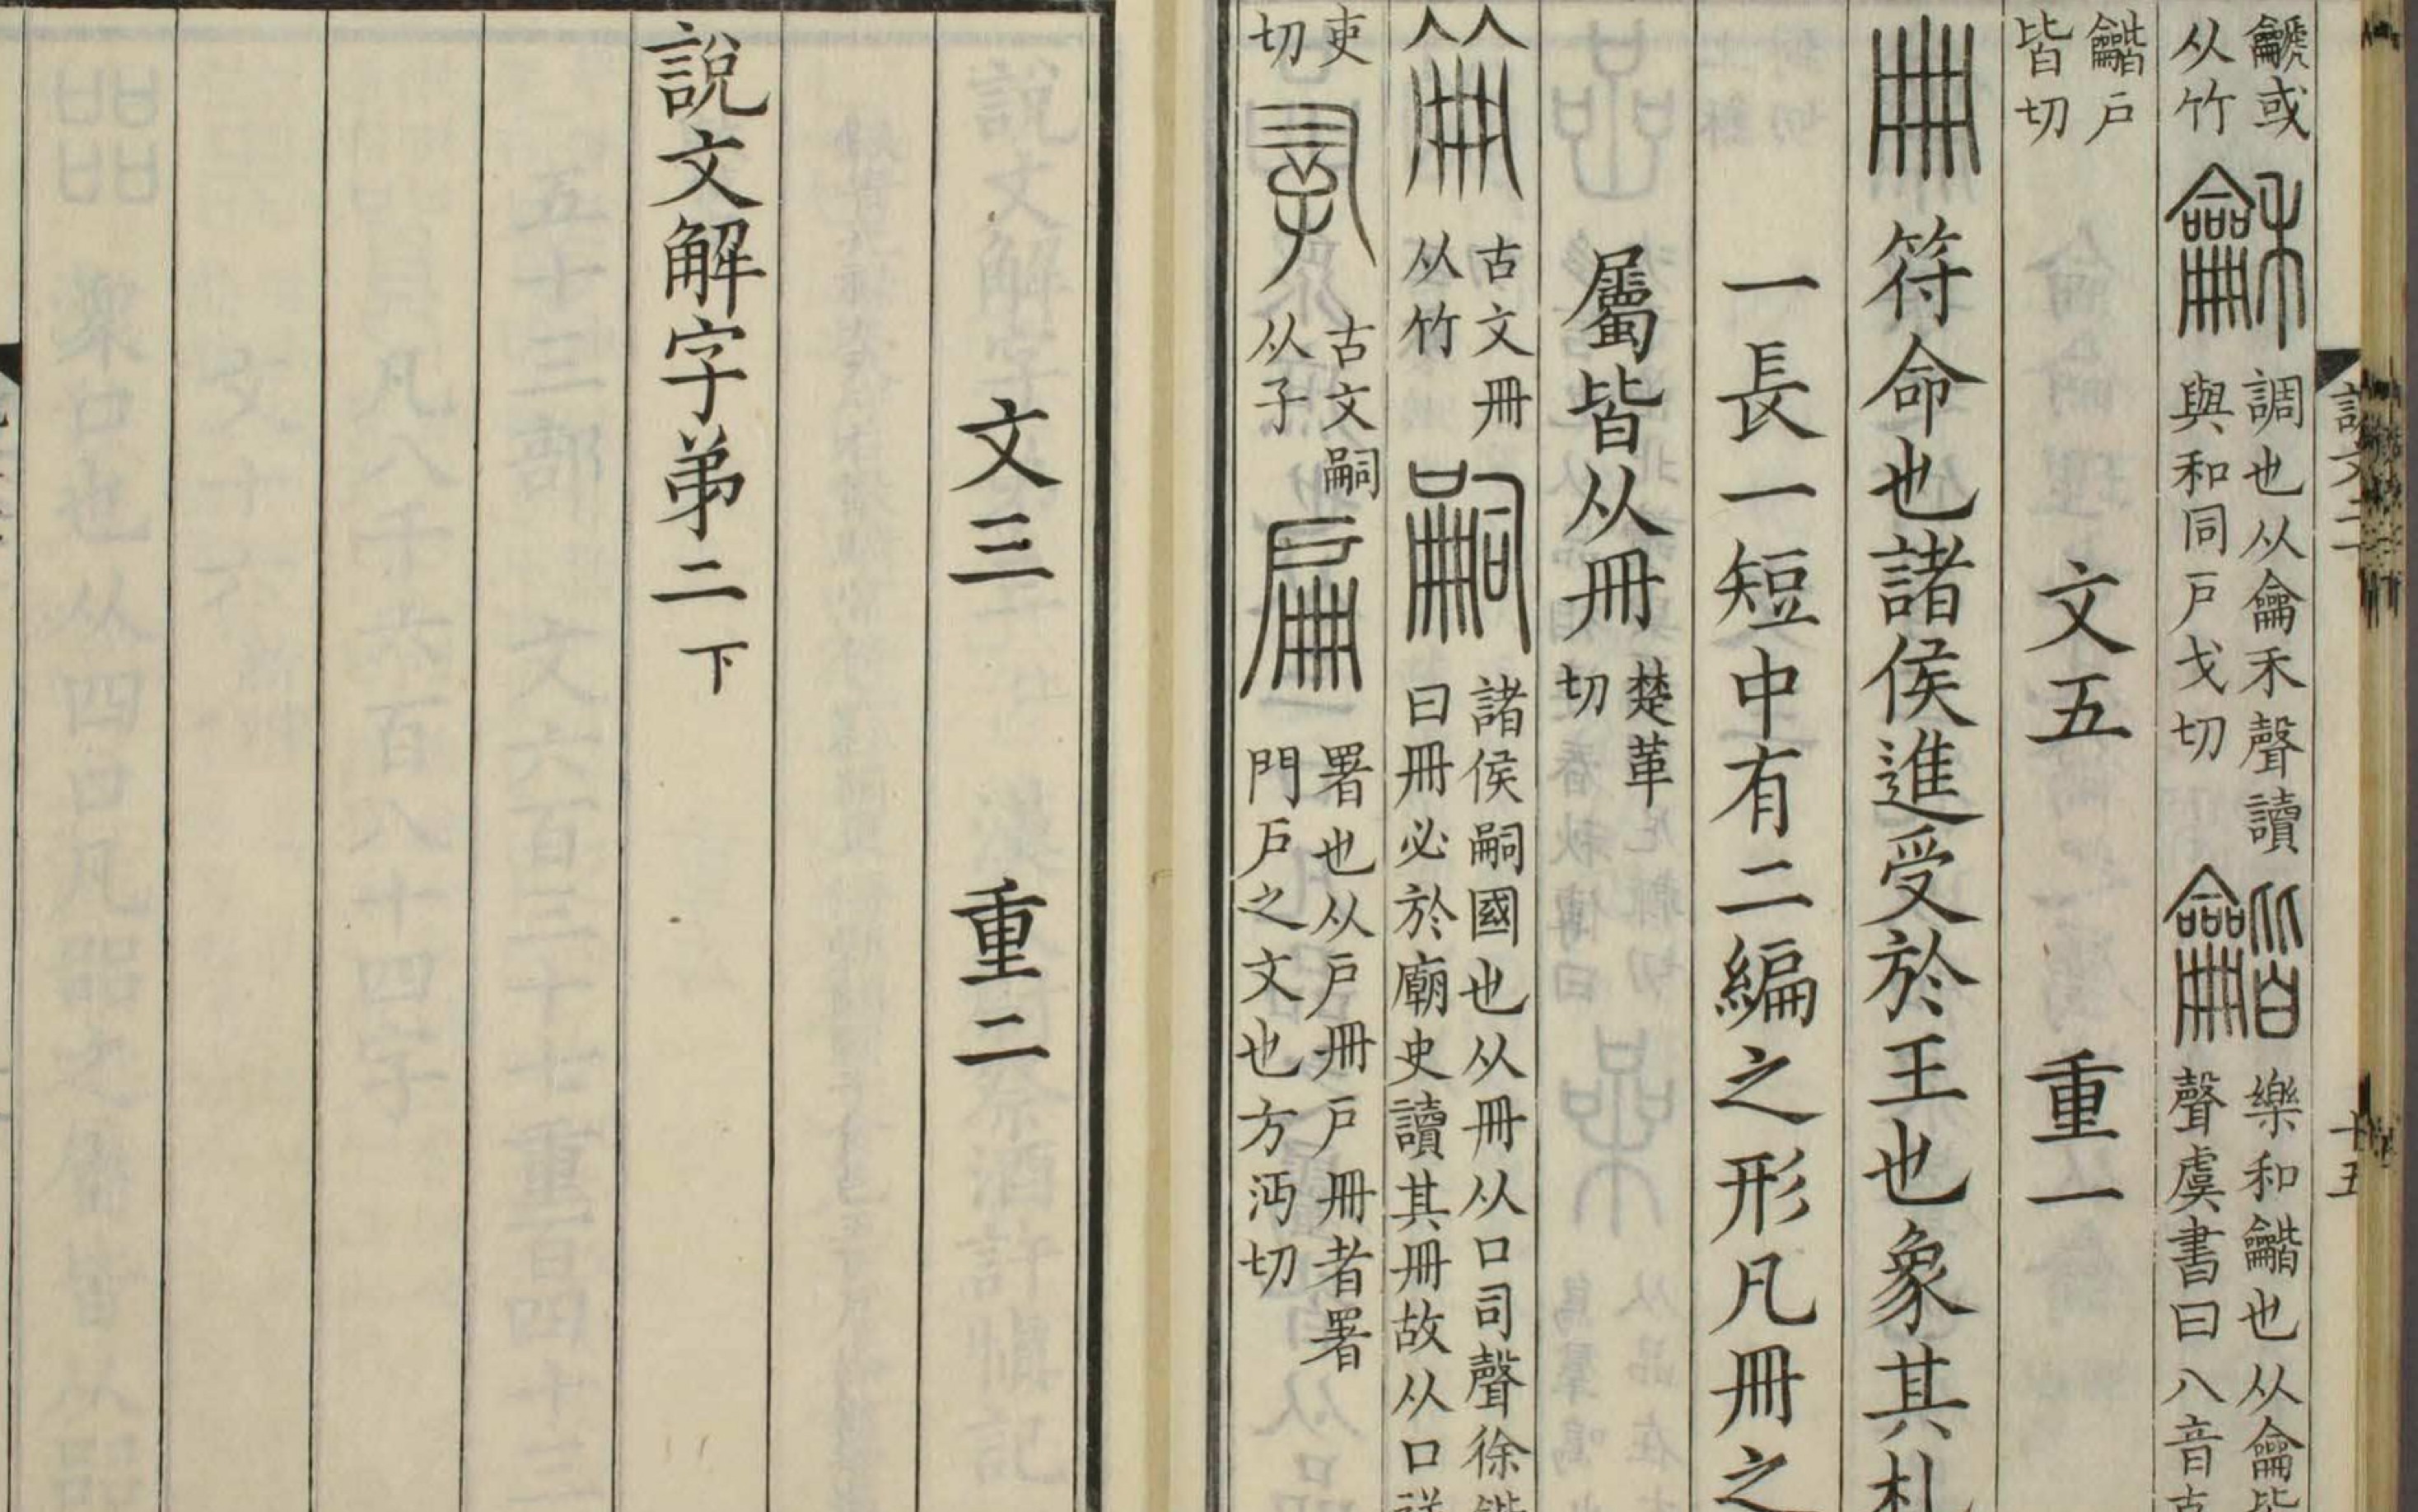 說文二
十五
龢或从竹 龢 調也从龠禾聲讀與和同戸戈切 龤 樂和龤也从龠皆聲虞書曰八音
龤戸皆切 文五 重一
冊 符命也諸侯進受於王也象其札
一長一短中有二編之形凡冊之
屬皆从冊楚革切
𠕋 古文冊从竹 嗣 諸侯嗣國也从冊从口司聲徐鍇曰冊必於廟史讀其冊故从口祥
吏切 𤔲 古文嗣从子 扁 署也从戸冊戸冊者署門戸之文也方沔切
文三 重二
說文解字弟二下